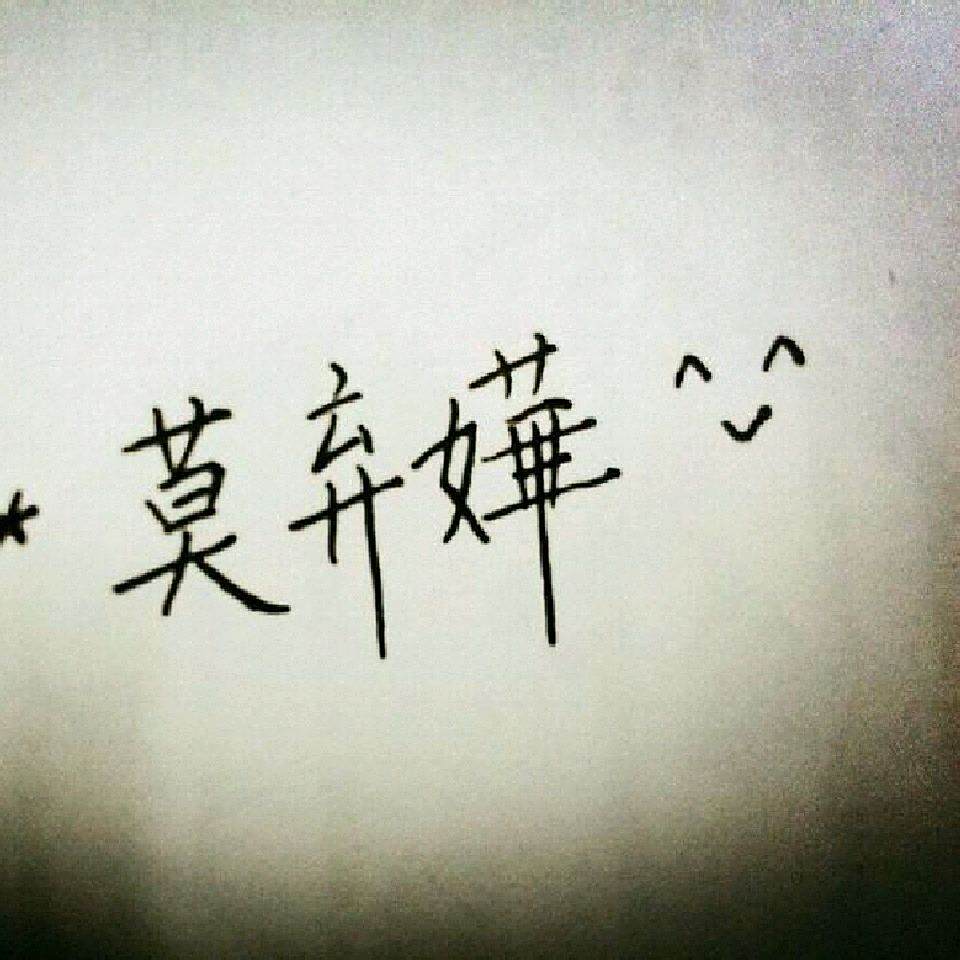 * 莫弃嬅 ^ ^